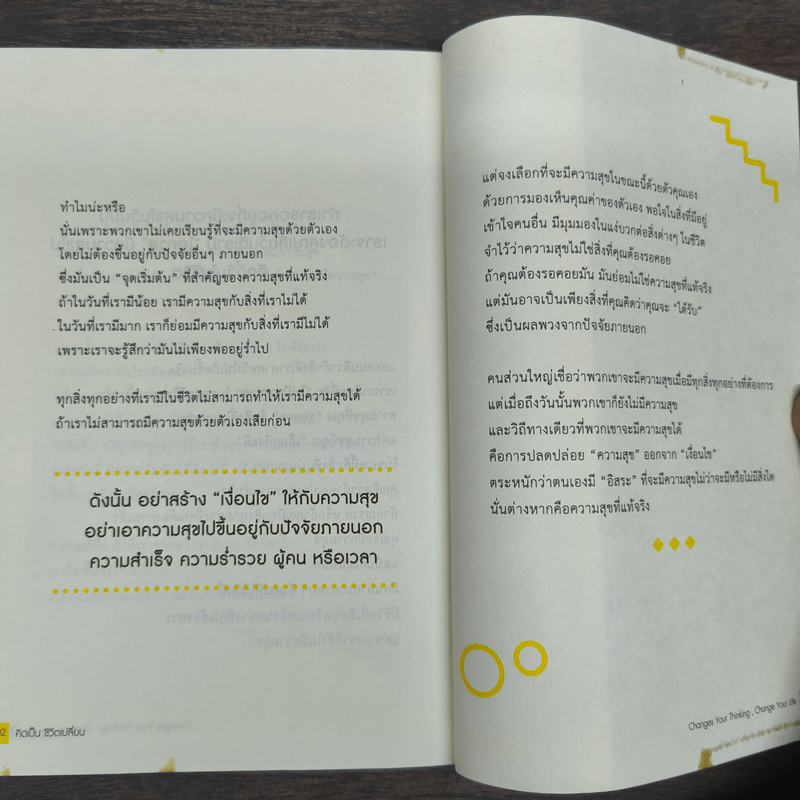 ทำไมน่ะหรือ
นั่นเพราะพวกเขาไม่เคยเรียนรู้ที่จะมีความสุขด้วยตัวเอง
โดยไม่ต้องขึ้นอยู่กับปัจจัยอื่นๆ ภายนอก
ซึ่งมันเป็น “จุดเริ่มต้น” ที่สำคัญของความสุขที่แท้จริง
ถ้าในวันที่เรามีน้อย เรามีความสุขกับสิ่งที่เราไม่ได้
ในวันที่เรามีมาก เราก็ย่อมมีความสุขกับสิ่งที่เรามีไม่ได้
เพราะเราจะรู้สึกว่ามันไม่เพียงพออยู่ร่ำไป
ทุกสิ่งทุกอย่างที่เรามีในชีวิตไม่สามารถทำให้เรามีความสุขได้
ถ้าเราไม่สามารถมีความสุขด้วยตัวเองเสียก่อน
ดังนั้น อย่าสร้าง “เงื่อนไข” ให้กับความสุข
อย่าเอาความสุขไปขึ้นอยู่กับปัจจัยภายนอก
ความสำเร็จ ความร่ำรวย ผู้คน หรือเวลา
02 คิดเป็น ชีวิตเปลี่ยน
แต่จงเลือกที่จะมีความสุขในขณะนี้ด้วยตัวคุณเอง
ด้วยการมองเห็นคุณค่าของตัวเอง พอใจในสิ่งที่มีอยู่
เข้าใจคนอื่น มีมุมมองในแง่บวกต่อสิ่งต่างๆ ในชีวิต
จำไว้ว่าความสุขไม่ใช่สิ่งที่คุณต้องรอคอย
ถ้าคุณต้องรอคอยมัน มันย่อมไม่ใช่ความสุขที่แท้จริง
แต่มันอาจเป็นเพียงสิ่งที่คุณคิดว่าคุณจะ “ได้รับ”
ซึ่งเป็นผลพวงจากปัจจัยภายนอก
คนส่วนใหญ่เชื่อว่าพวกเขาจะมีความสุขเมื่อมีทุกสิ่งทุกอย่างที่ต้องการ
แต่เมื่อถึงวันนั้นพวกเขาก็ยังไม่มีความสุข
และวิถีทางเดียวที่พวกเขาจะมีความสุขได้
คือการปลดปล่อย “ความสุข” ออกจาก “เงื่อนไข”
ตระหนักว่าตนเองมี “อิสระ” ที่จะมีความสุขไม่ว่าจะมีหรือไม่มีสิ่งใด
นั่นต่างหากคือความสุขที่แท้จริง
Changes Your Thinking , Change Your Life